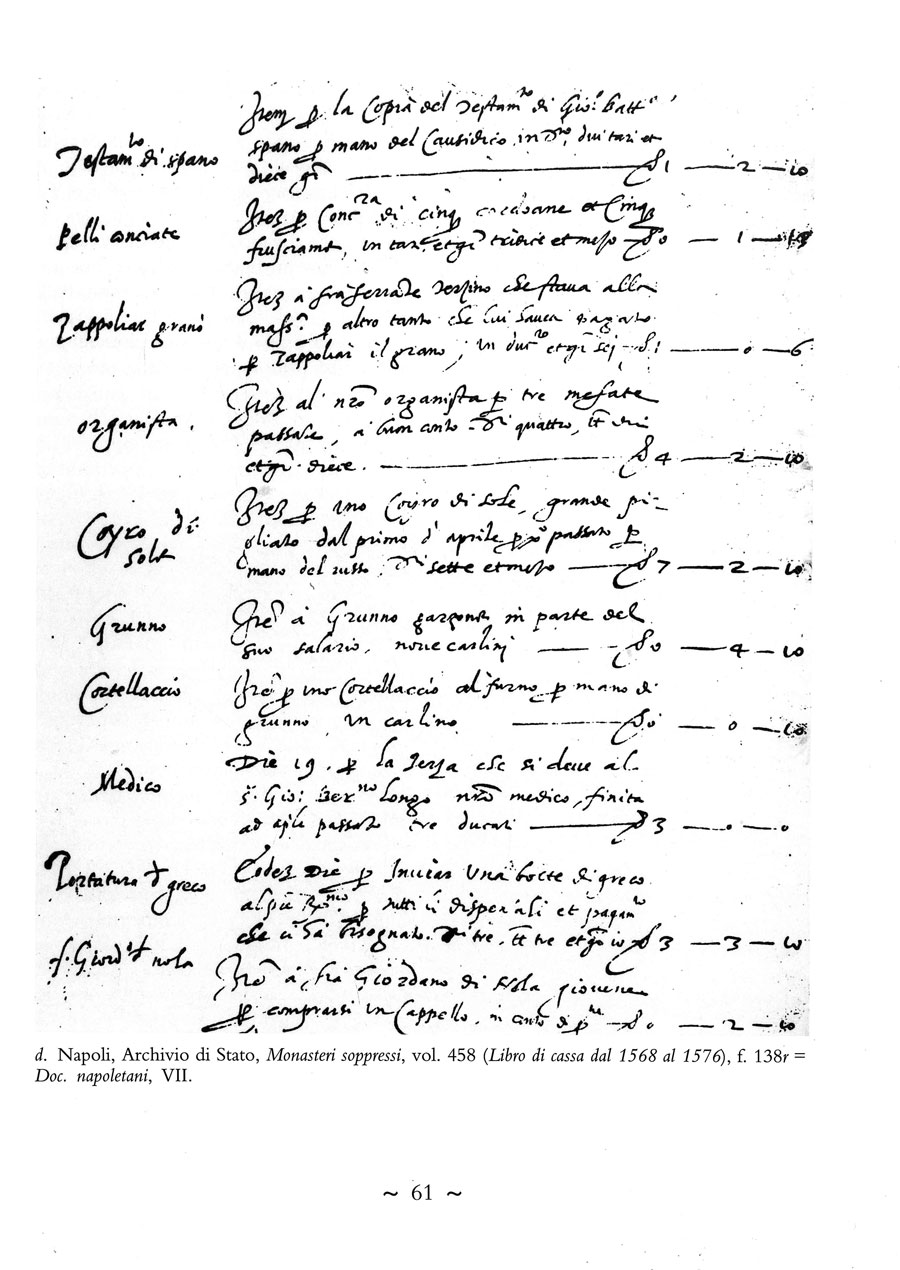 Testam.to di spano
Item p la Copia del Testam.to di Gio: batt.a
spano p mano del Causidico, in D.to, dui tari et
diece gr. — 1 — 2 — 10
pelli conciate
Item p Conc.ra di cinq et Cinq
in tari et gr. tridice et meso — 0 — 1 —
Zappoliar grano
Item à fra ferrante che staua alla
mass.a p altro tanto che lui haueua pagato
p Zappoliar il grano, in duc.to et gr. sei — 1 — 0 — 6
organista.
Item al nro organista p tre mesate
passate, à bon conto Di quattro, tt. dui
et gr. diece. — 4 — 2 — 10
Coyro di
sole
Item p uno Coyro di sole, grande pi-
gliato dal primo d' aprile p.o passato p
mano del russo, Di sette et meso — 7 — 2 — 10
Grunno
Ite à Grunno garzone in parte del
suo salario, noue carlini — 0 — 4 — 10
Cortellaccio
Ite p uno Cortellaccio al furno p mano di
grunno un carlino — 0 — 0 — 10
Medico
Die 19. p la Terza che si deue al
s. Gio: Ber.no Longo nro medico, finita
ad aprile passato tre ducati — 3 — 0 — 0
Portatura d greco
Eodem Die p Inuiar Una botte di greco
al p tutti li et pagam.to
che ci hà bisognato. Di tre, tt. tre et gr. 10 — 3 — 3 — 10
f. Giord.o d nola
Ite à frà Giordano di Nola giouene
p comprarsi un Cappello, in conto di — 0 — 2 — 10
d. Napoli, Archivio di Stato, Monasteri soppressi, vol. 458 (Libro di cassa dal 1568 al 1576), f. 138r =
Doc. napoletani, VII.
~ 61 ~